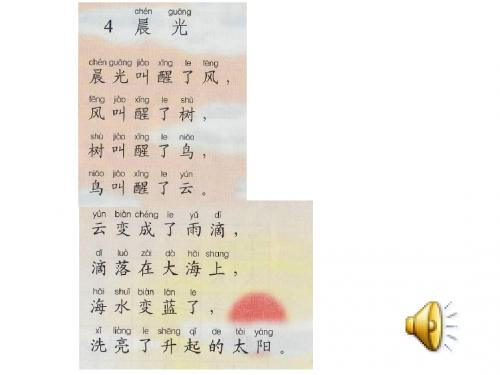 chén guāng
4 晨 光
chén guāng jiào xǐng le fēng
晨 光 叫 醒 了 风，
fēng jiào xǐng le shù
风 叫 醒 了 树，
shù jiào xǐng le niǎo
树 叫 醒 了 鸟，
niǎo jiào xǐng le yún
鸟 叫 醒 了 云。
yún biàn chéng le yǔ dī
云 变 成 了 雨 滴，
dī luò zài dà hǎi shang
滴 落 在 大 海 上，
hǎi shuǐ biàn lán le
海 水 变 蓝 了，
xǐ liàng le shēng qǐ de tài yáng
洗 亮 了 升 起 的 太 阳。